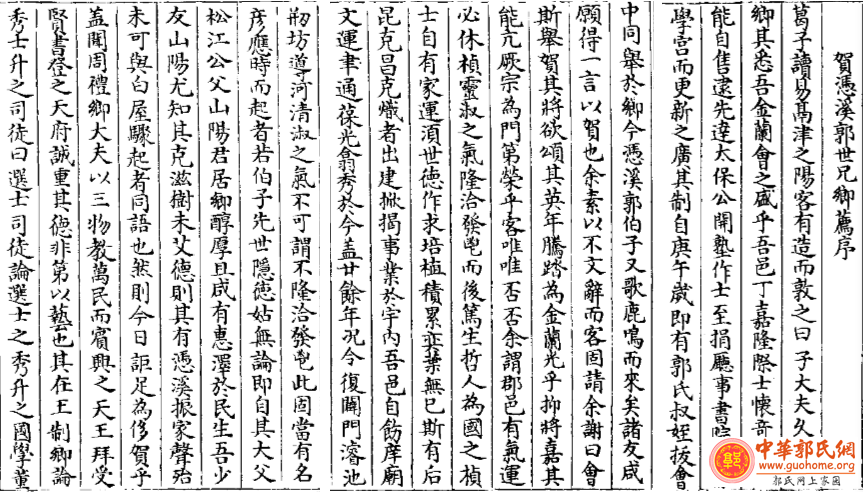 賀憑溪郭世兄鄉薦序
葛子讀易鬲津之陽客有造而敦之曰子大夫久
鄉其悉吾金蘭會之盛乎吾邑丁嘉隆際士懷奇
能自售逮先達太保公開塾作士至捐廳事書院
學宮而更新之廣其制自庚午歲即有郭氏叔姪拔會
中同舉於鄉今憑溪郭伯子又歌鹿鳴而來矣諸友咸
願得一言以賀也余素以不文辭而客固請余謝曰會
斯舉賀其將欲頌其英年騰踏為金蘭光乎抑將嘉其
能亢厥宗為門第榮乎客唯唯否否余謂郡邑有氣運
必休楨靈淑之氣隆洽發皀而後篤生哲人為國之楨
士自有家運湏世德作求培植積累奕葉無已斯有后
昆克昌克熾者出建掀揭事業於宇內吾邑自飭庠廟
文運聿通葆光翕秀於今盖廿餘年况今復闢門濬池
剏坊導河清淑之氣不可謂不隆洽發皀此固當有名
彥應時而起者若伯子先世隱德姑無論即自其大父
松江公父山陽君居鄉醇厚且咸有惠澤於民生吾少
友山陽尤知其克滋樹未艾德則其有憑溪振家聲殆
未可與白屋驟起者同語也然則今日詎足為侈賀乎
盖聞周禮鄉大夫以三物教萬民而賓興之天王拜受
賢書登之天府誠重其德非第以藝也其在王制鄉論
秀士升之司徒曰選士司徒論選士之秀升之國學董
中華郭氏網
www.guohome.org
郭氏网上家園